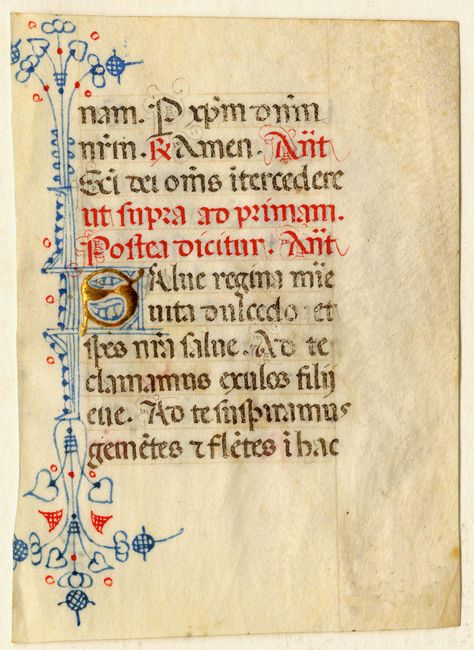 nam. P xp̄m dn̄m
nr̄m. ℟ Amen. An̄t
Sc̄i dei om̄s ītercedere
ut supra ad primam.
Postea dicitur. An̄t
Salue regina mīe
uita dulcedo et
spes nr̄a salue. Ad te
clamamus exules filij
eue. Ad te suspiramus
gemētes ⁊ flētes ī hac